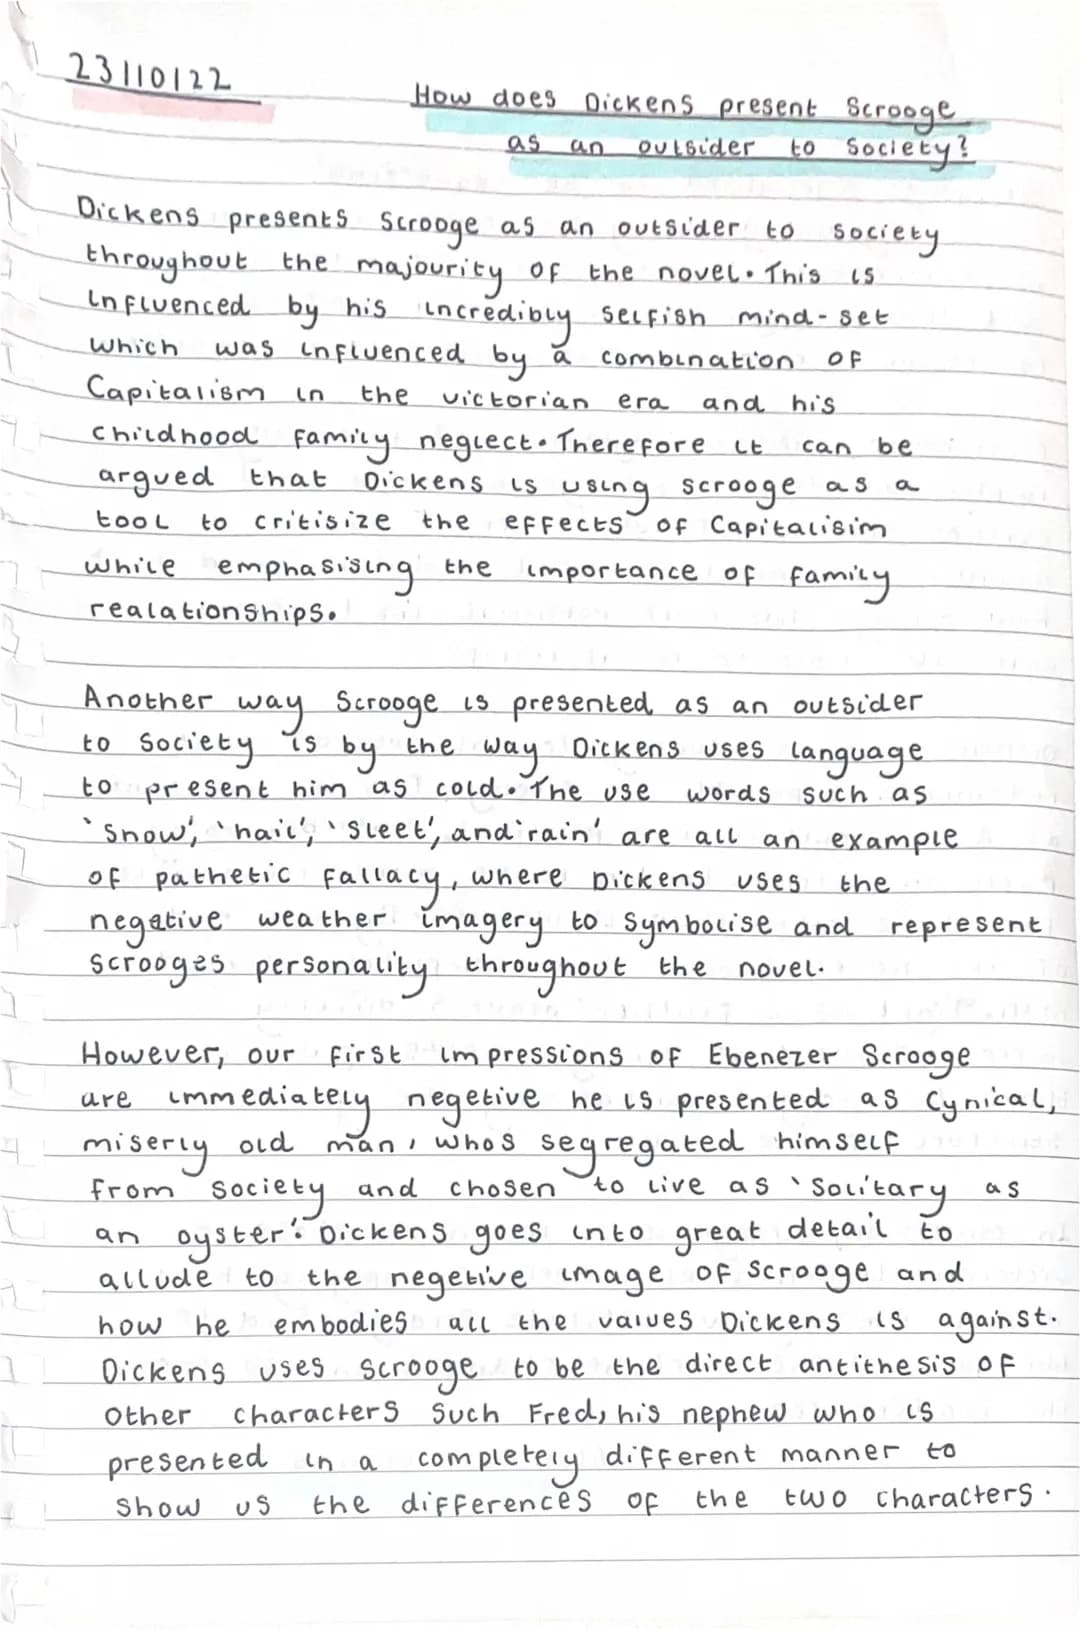 23110122
How does Dickens present Scrooge
as an outsider to Society?
Dickens presents Scrooge as an outsider to society
throughout the majourity of the novel. This is
influenced by his incredibly selfish mind-set
which was influenced by a combination of
Capitalism in the victorian era and his
childhood family neglect. Therefore it can be
argued that Dickens is using scrooge as a
tool to critisize the effects of Capitalisim
while emphasising the importance of family
realationships.
Another way Scrooge is presented as an outsider
to Society is by the way Dickens uses language
to present him as cold. The use words such as
'Snow', 'hail', 'Sleet', and 'rain' are all an example
of pathetic fallacy, where Dickens uses the
negative weather imagery to Symbolise and represent
Scrooges personality throughout the novel.
However, our first impressions of Ebenezer Scrooge
are immediately negetive he is presented as Cynical,
miserly old man, whos segregated himself
from Society and chosen to live as 'Solitary as
an oyster'. Dickens goes into great detail to
allude to the negetive image of Scrooge and
how he embodies all the values Dickens is against.
Dickens uses Scrooge to be the direct antithesis of
other characters Such Fred, his nephew who is
presented in a completely different manner to
Show us the differences of the two characters.